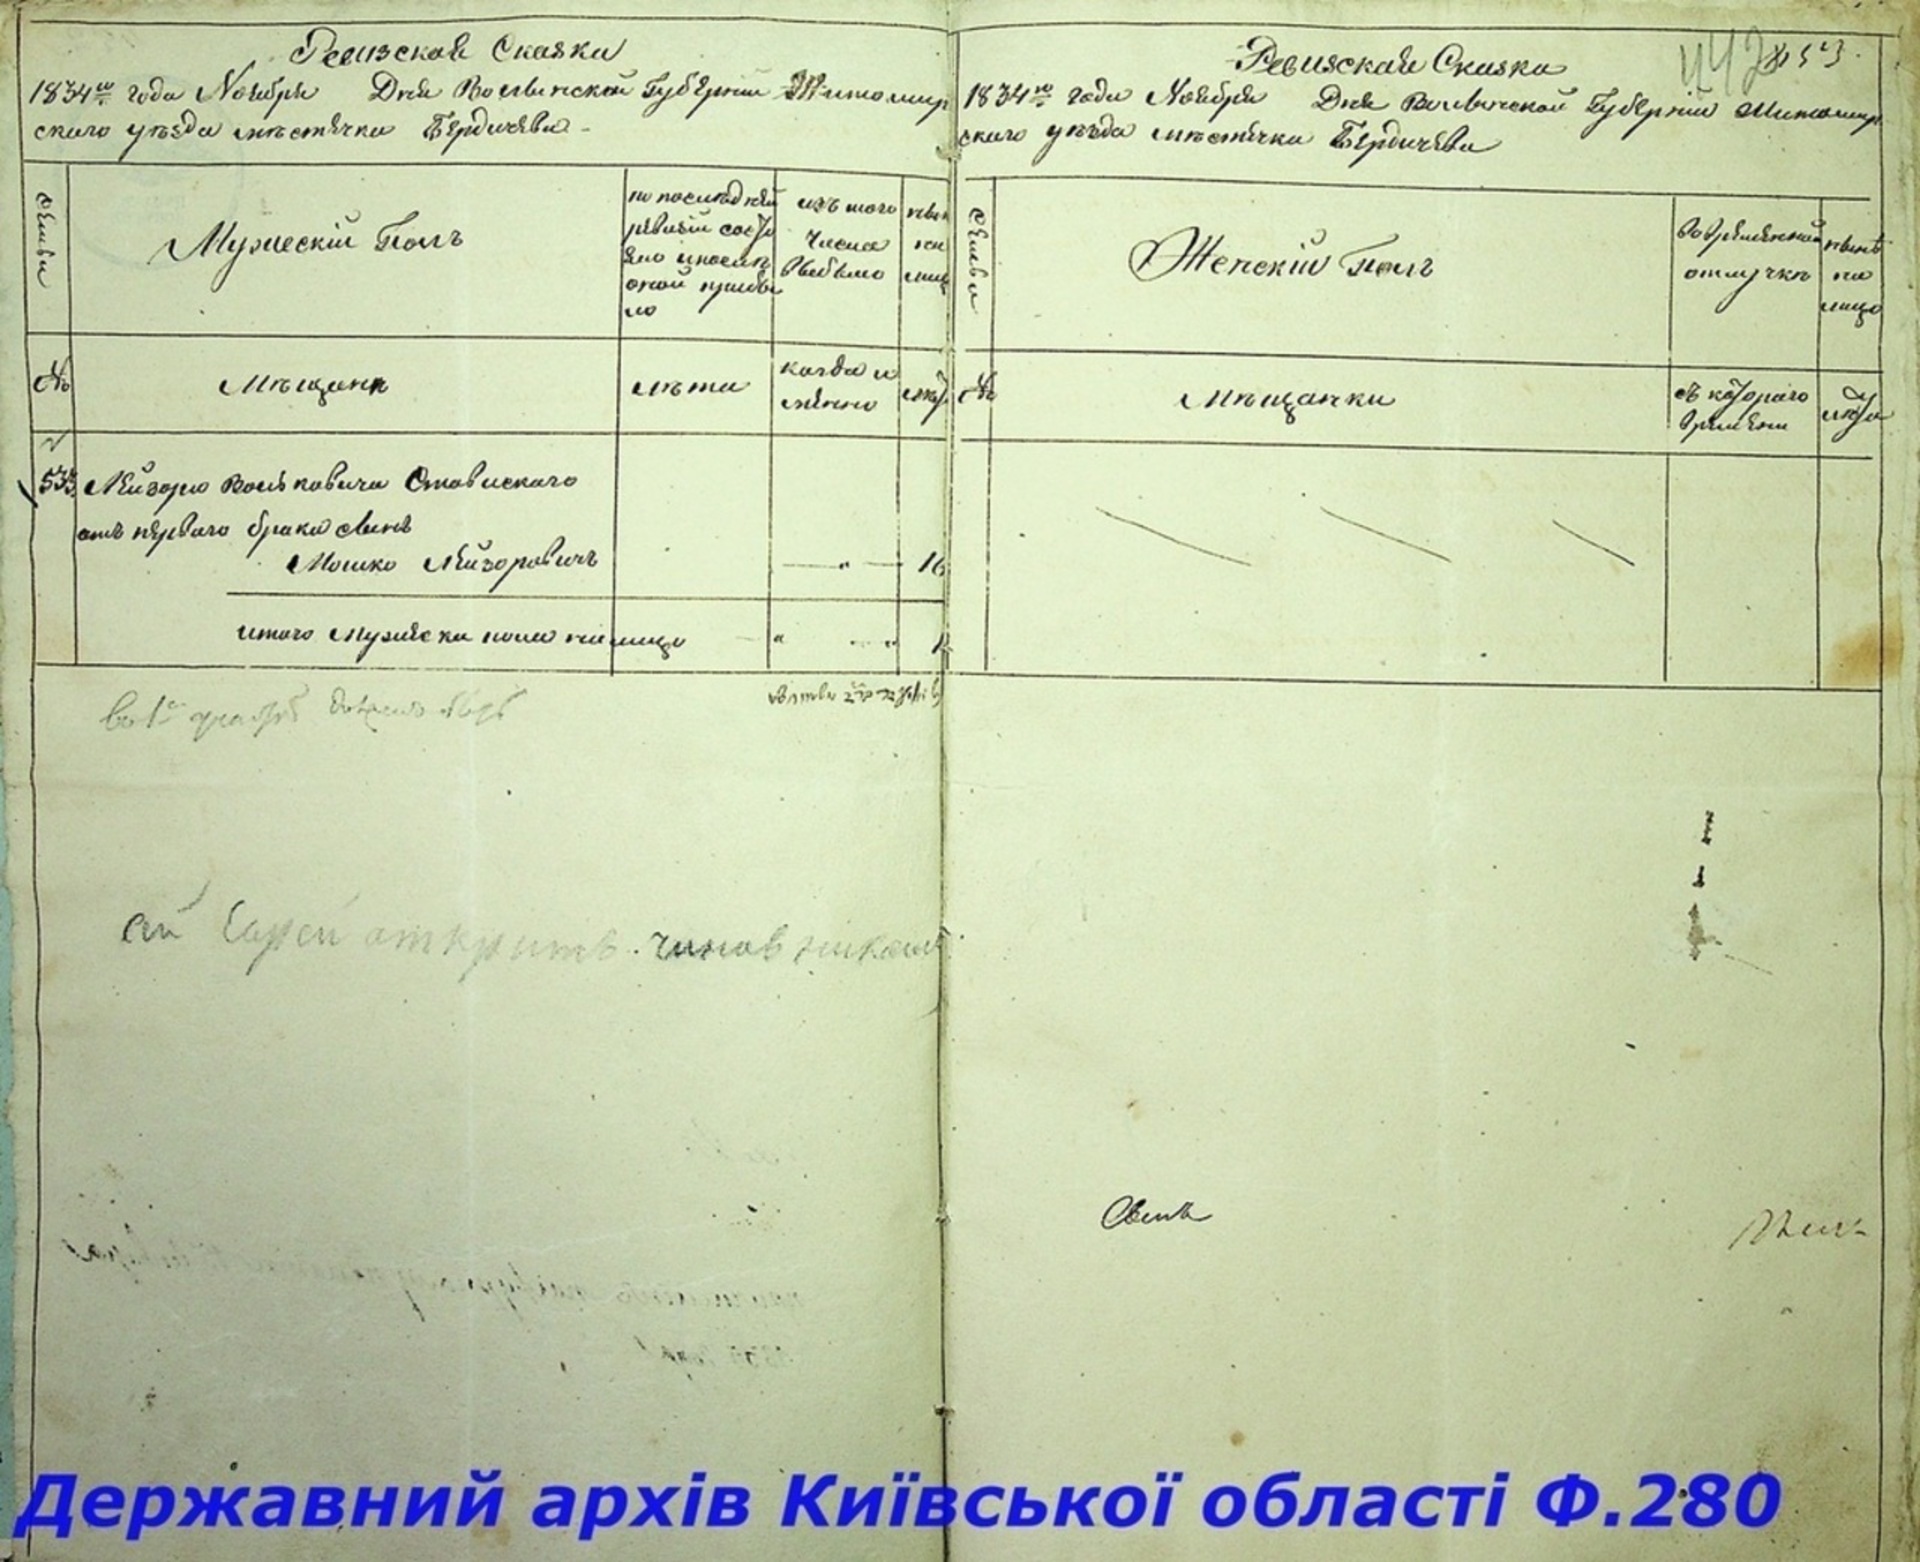 Ревизская Сказка
1834го года Ноября Дня Волынской Губерніи Житомир
скаго уѣзда мѣстечка Бердичева
семьи
Мужескій Полъ
по последней
ревизіи состо
яло и после
оной прибы
ло
изъ того
числа
выбыло
нынѣ
на
лицо
№
Мѣщане
лѣта
когда и
менно
лѣта
533
Лейзора Вольковича Ставискаго
отъ перваго брака сынъ
Мошко Лейзоровичъ
16
итого мужеска пола на лицо
1
во 1й
сей Еврей открытъ чиновникомъ
Ревизская Сказка
442
1834го года Ноября Дня Волынской Губерніи Житомир
скаго уѣзда мѣстечка Бердичева
семьи
Женскій Полъ
во временной
отлучкѣ
нынѣ
на
лицо
№
Мѣщанки
съ котораго
времени
лѣта
Державний архів Київської області Ф.280